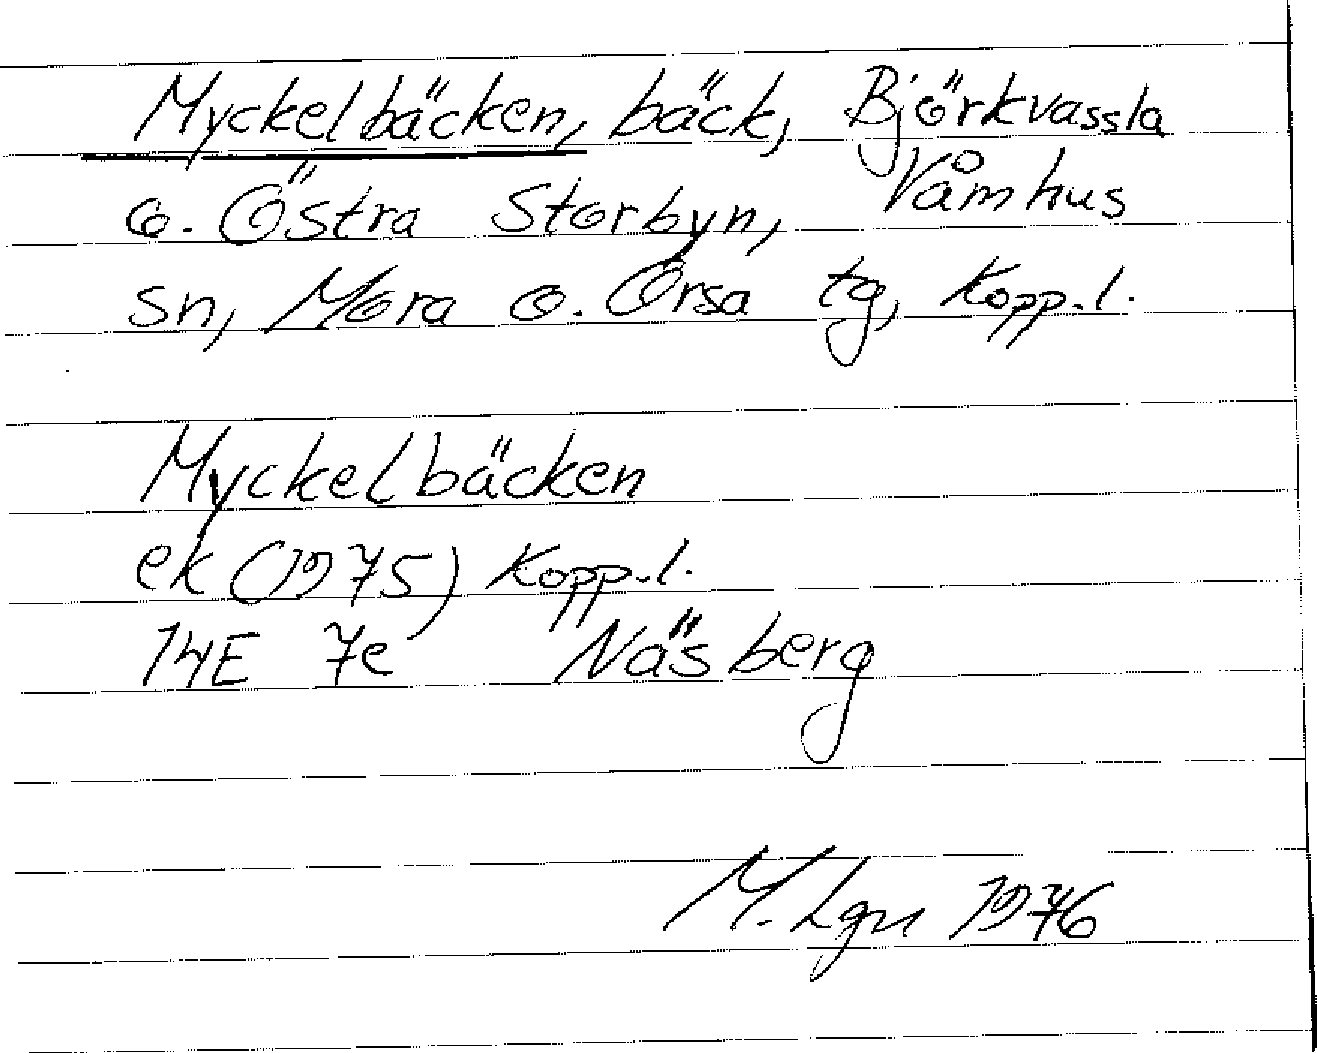 Myckelbäcken, bäck, Björkvassla
o. Östra Storbyn, Våmhus
sn, Mora o. Orsa tg, Kopp.l.
Myckelbäcken
ek (1975) Kopp.l.
14E 7e Näsberg
M. Lgn 1976